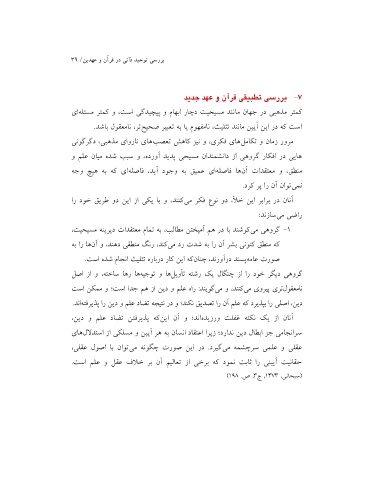 بررسی توحید ذاتی در قرآن و عهدین / ۳۹
۷- بررسی تطبیقی قرآن و عهد جدید
کمتر مذهبی در جهان مانند مسیحیت دچار ابهام و پیچیدگی است، و کمتر مسئله‌ای
است که در این آیین مانند تثلیث، نامفهوم یا به تعبیر صحیح‌تر، نامعقول باشد.
مرور زمان و تکامل‌های فکری، و نیز کاهش تعصب‌های ناروای مذهبی، دگرگونی
هایی در افکار گروهی از دانشمندان مسیحی پدید آورده، و سبب شده میان علم و
منطق، و معتقدات آن‌ها فاصله‌ای عمیق به وجود آید، فاصله‌ای که به هیچ وجه
نمی‌توان آن را پر کرد.
آنان در برابر این خلأ، دو نوع فکر می‌کنند، و با یکی از این دو طریق خود را
راضی می‌سازند:
۱- گروهی می‌کوشند با در هم آمیختن مطالب، به تمام معتقدات دیرینه مسیحیت،
که منطق کنونی بشر آن را به شدت رد می‌کند، رنگ منطقی دهند، و آن‌ها را به
صورت عامه‌پسند درآورند، چنان‌که این کار درباره تثلیث انجام شده است.
گروهی دیگر خود را از چنگال یک رشته تأویل‌ها و توجیه‌ها رها ساخته، و از اصل
نامعقول‌تری پیروی می‌کنند، و می‌گویند: راه علم و دین از هم جدا است؛ و ممکن است
دین، اصلی را بپذیرد که علم آن را تصدیق نکند؛ و در نتیجه تضاد علم و دین را پذیرفته‌اند.
آنان از یک نکته غفلت ورزیده‌اند؛ و آن این‌که پذیرفتن تضاد علم و دین،
سرانجامی جز ابطال دین ندارد؛ زیرا اعتقاد انسان به هر آیین و مسلکی از استدلال‌های
عقلی و علمی سرچشمه می‌گیرد. در این صورت چگونه می‌توان با اصول عقلی،
حقانیت آیینی را ثابت نمود که برخی از تعالیم آن بر خلاف عقل و علم است.
(سبحانی، ۱۳۷۳، ج۳، ص ۱۹۸)